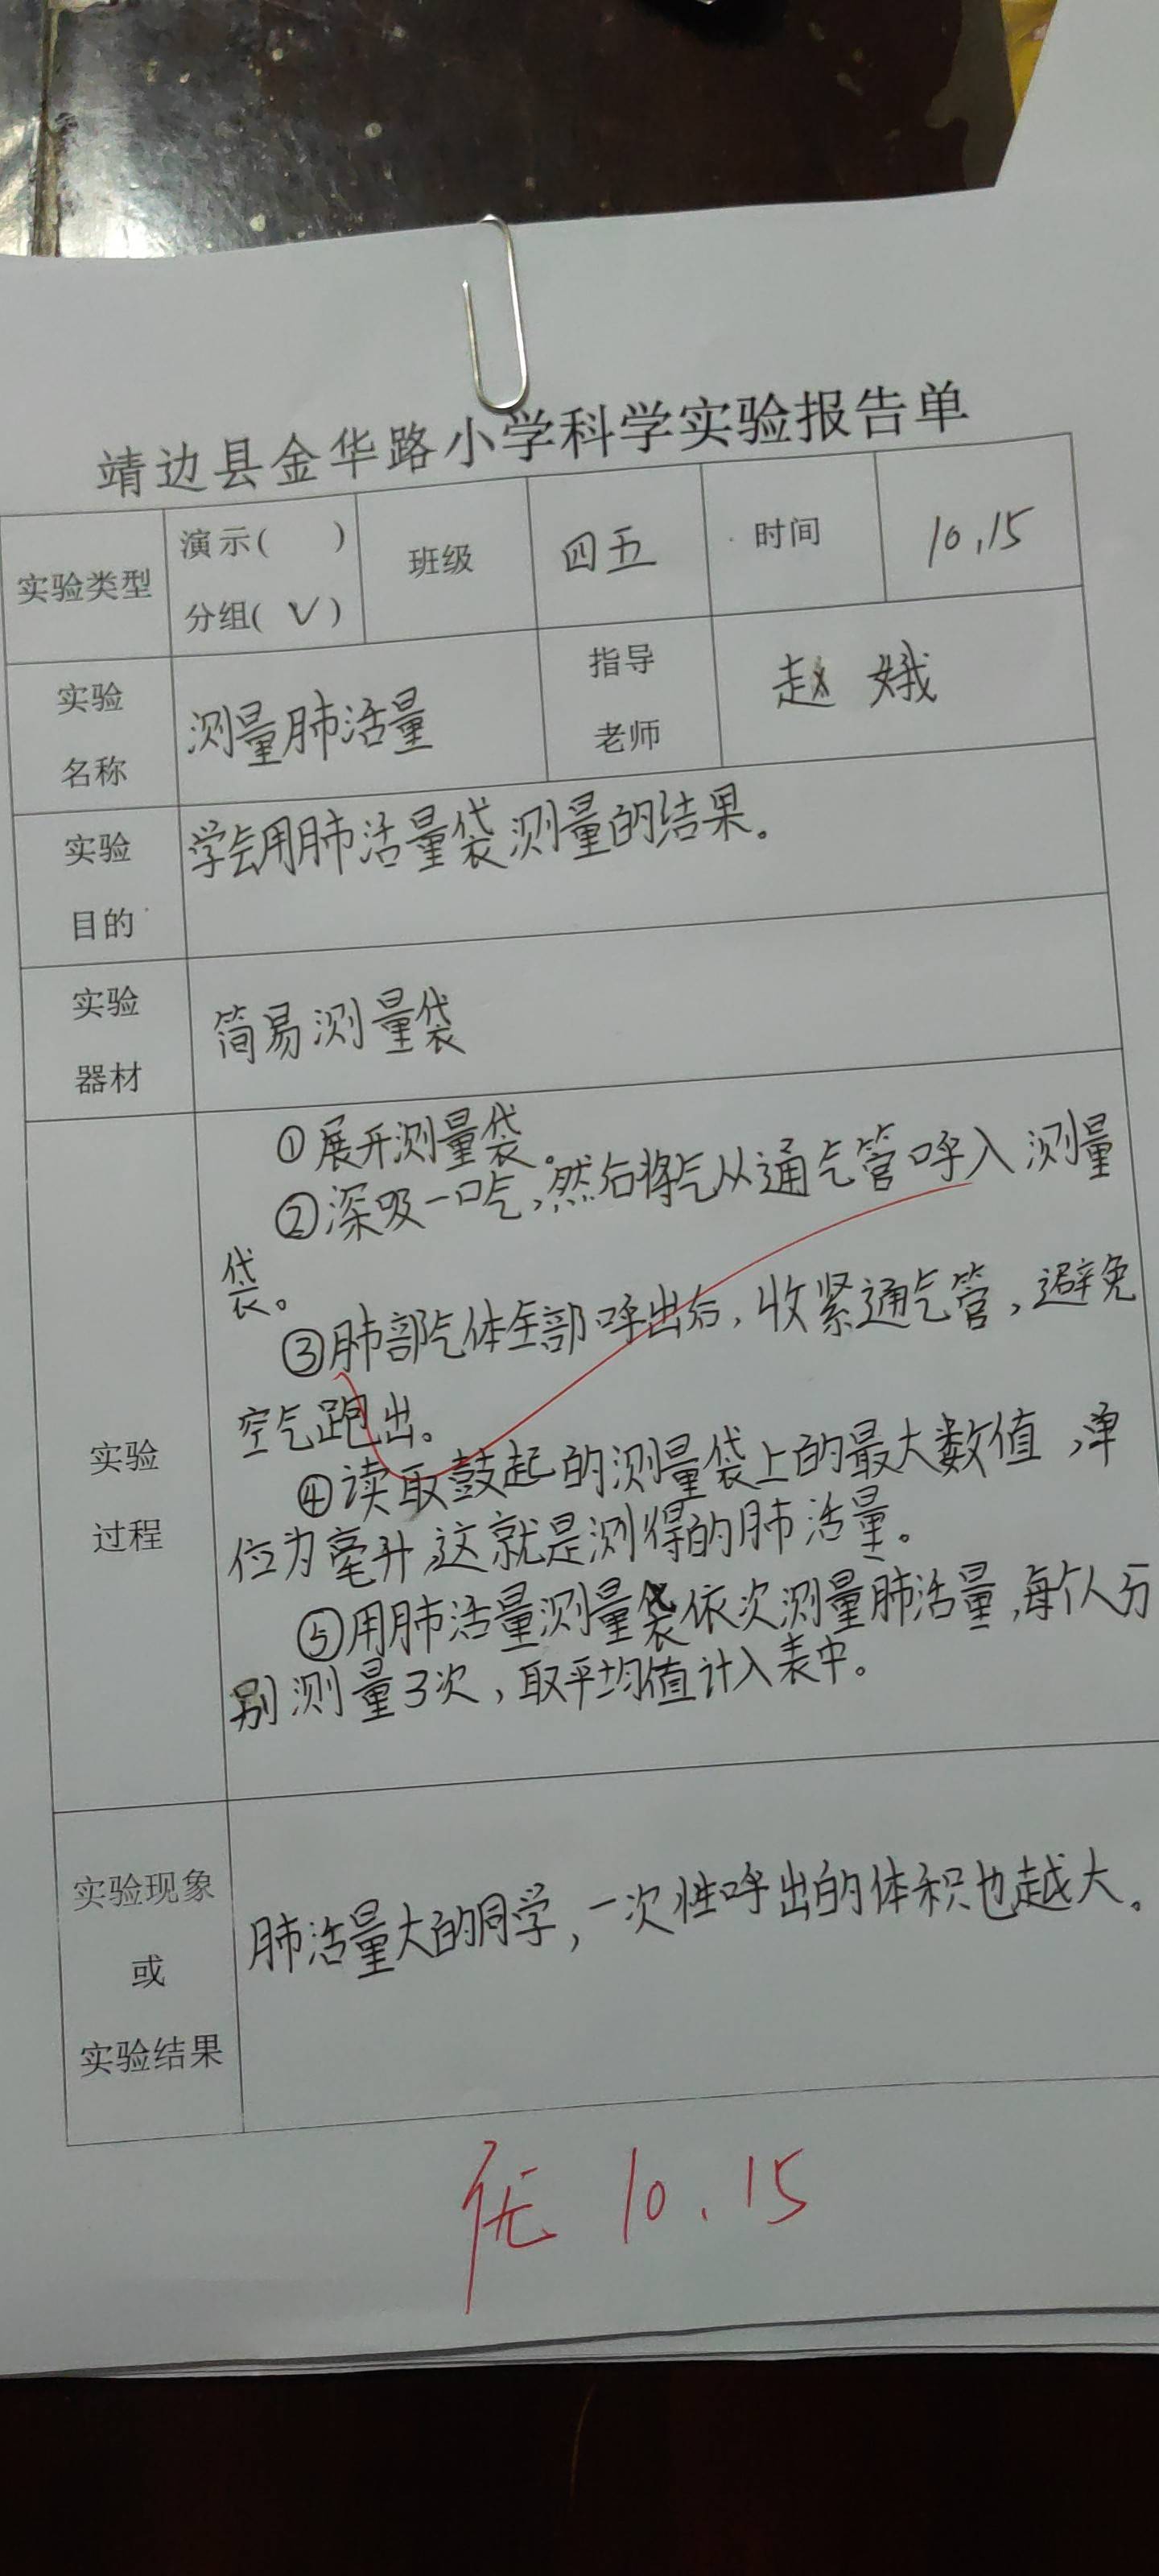 靖边县金华路小学科学实验报告单
实验类型 演示( ) 分组( √ ) 班级 四五 时间 10.15
实验名称 测量肺活量 指导老师 赵娥
实验目的 学会用肺活量袋测量的结果。
实验器材 简易测量袋
实验过程
①展开测量袋。
②深吸一口气,然后将气从通气管呼入测量
袋。
③肺部气体全部呼出后,收紧通气管,避免
空气跑出。
④读取鼓起的测量袋上的最大数值,单
位为毫升,这就是测得的肺活量。
⑤用肺活量测量袋依次测量肺活量,每个人分
别测量3次,取平均值计入表中。
实验现象或实验结果 肺活量大的同学,一次性呼出的体积也越大。
优 10.15